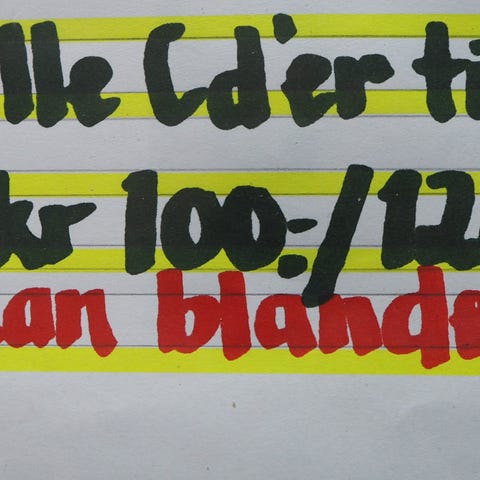 lle Cd'er ti
kr 100:-/12
an blande